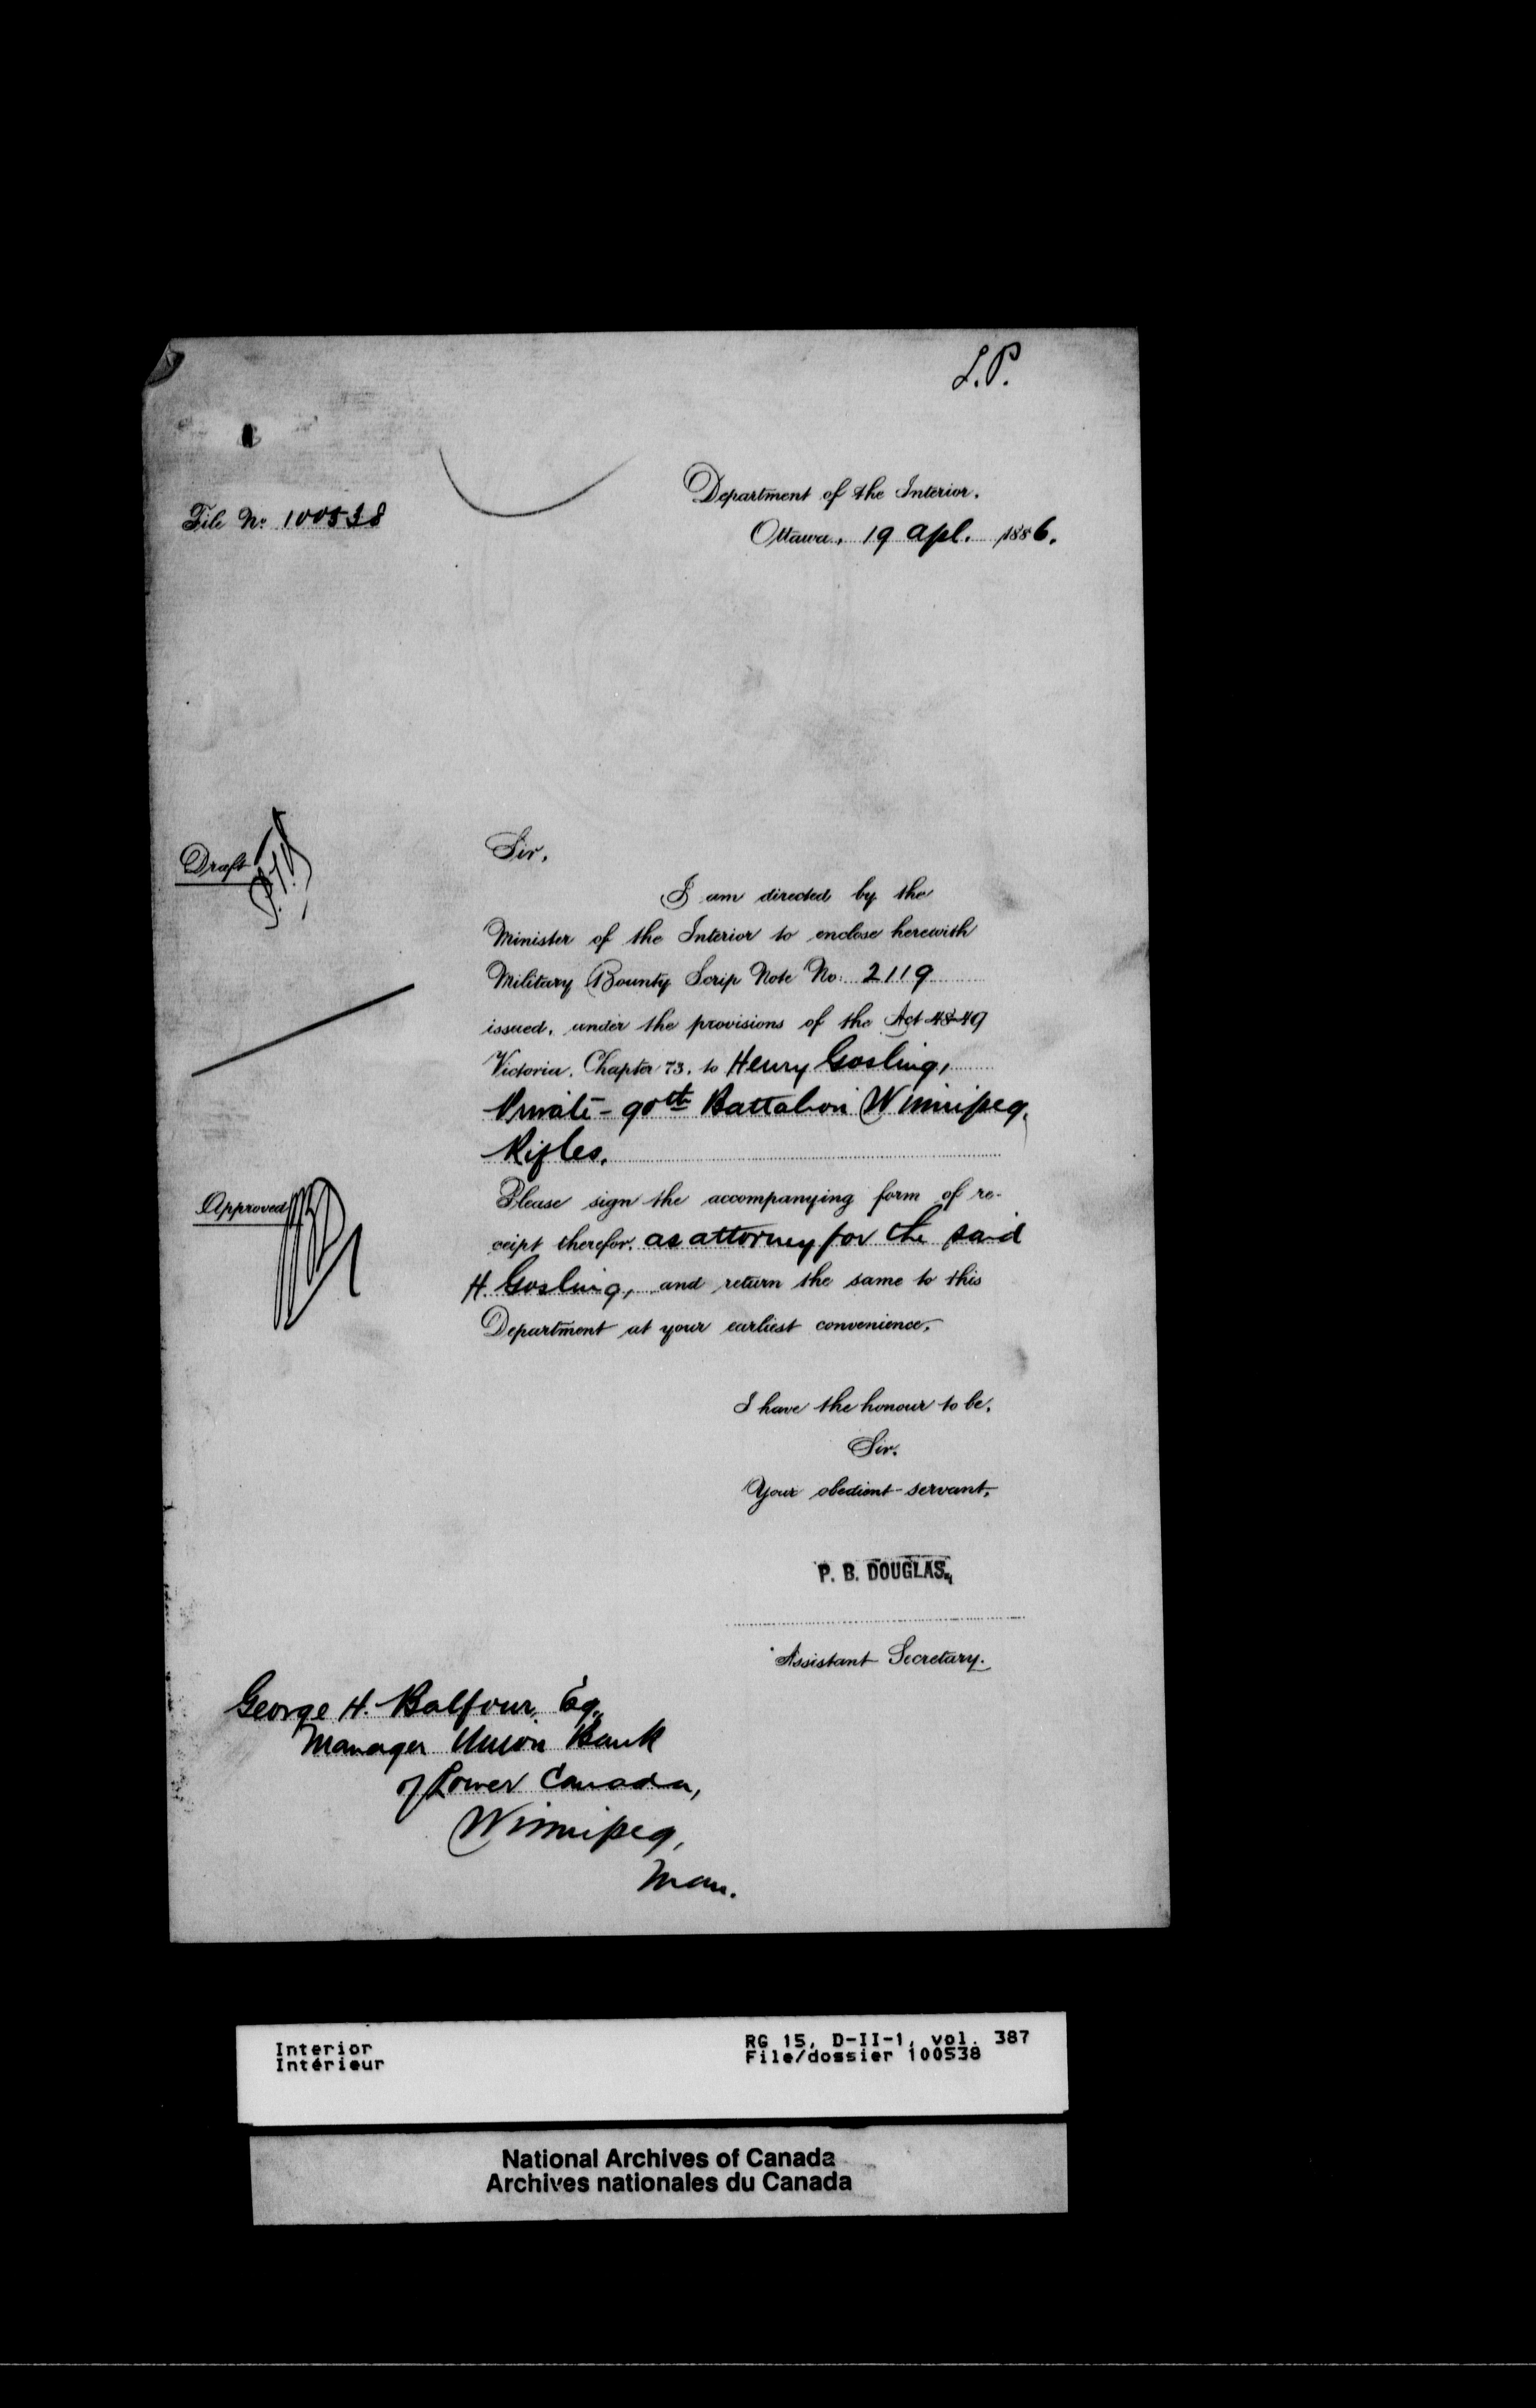 L.P.
Department of the Interior.
File No. 100538
Ottawa, 19 Apl. 1886.
Draft
Sir,
I am directed by the
Minister of the Interior to enclose herewith
Military Bounty Scrip Note No. 2119
issued, under the provisions of the Act 48-49
Victoria, Chapter 73, to Henry Gosling,
Private - 90th Battalion Winnipeg
Rifles.
Approved
Please sign the accompanying form of re-
ceipt therefor, as attorney for the said
H. Gosling, and return the same to this
Department at your earliest convenience.
I have the honour to be,
Sir,
Your obedient servant,
P. B. DOUGLAS,
Assistant Secretary.
George H. Balfour, Esq.
Manager Union Bank
of Lower Canada,
Winnipeg,
Man.
Interior
Intérieur
RG 15, D-II-1, vol. 387
File/dossier 100538
National Archives of Canada
Archives nationales du Canada